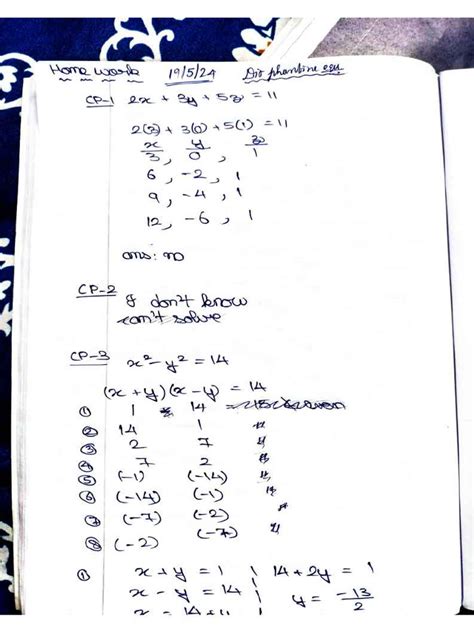 Home work 19/5/24 Dio phantine equ
CP-1 2x + 3y + 5z = 11
2(3) + 3(0) + 5(1) = 11
x y z
3, 0, 1
6, -2, 1
9, -4, 1
12, -6, 1
ans: no
CP-2 I don't know
can't solve
CP-3 x² - y² = 14
(x + y)(x - y) = 14
① 1 14
② 14 1 "
③ 2 7 "
④ 7 2 "
⑤ (-1) (-14) "
⑥ (-14) (-1) "
⑦ (-7) (-2) "
⑧ (-2) (-7) "
① x + y = 1 | 14 + 2y = 1
x - y = 14 | y = -13/2
x = 14 + y |